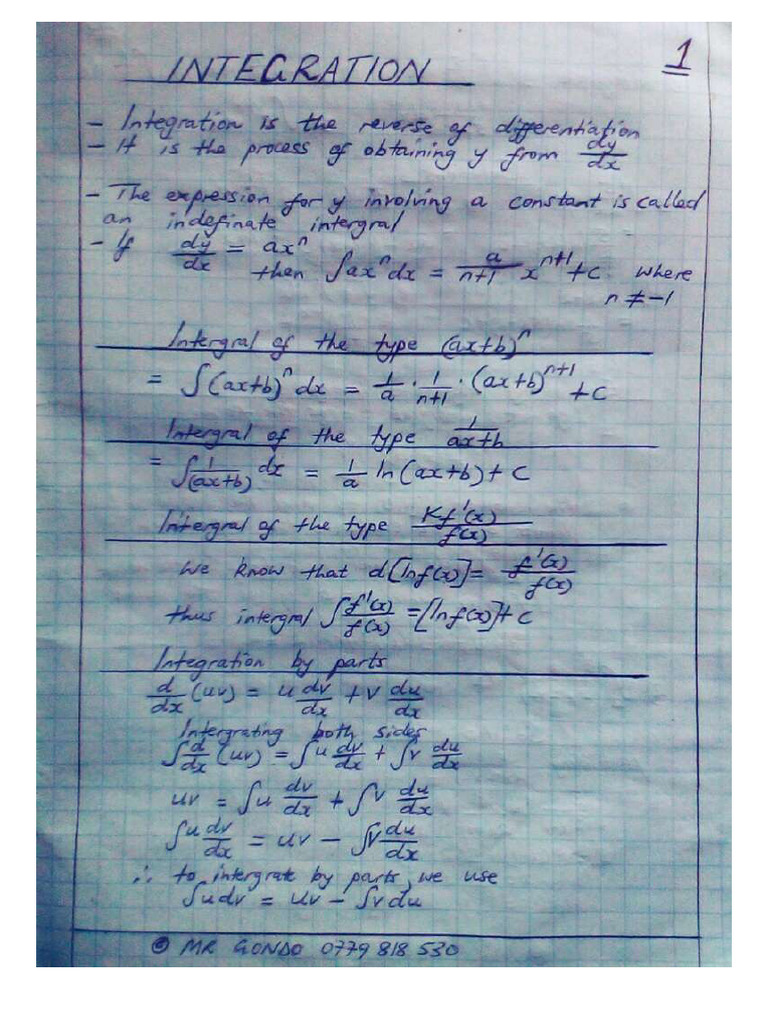 INTEGRATION 1
- Integration is the reverse of differentiation
- It is the process of obtaining y from dy/dx
- The expression for y involving a constant is called
an indefinate intergral
- If dy/dx = ax^n
then ∫ax^n dx = a/(n+1) x^(n+1) + c where
n ≠ -1
Intergral of the type (ax+b)^n
= ∫(ax+b)^n dx = 1/a · 1/(n+1) · (ax+b)^(n+1) + c
Intergral of the type 1/(ax+b)
= ∫ 1/(ax+b) dx = 1/a ln(ax+b) + c
Intergral of the type Kf'(x)/f(x)
We know that d[lnf(x)] = f'(x)/f(x)
thus intergral ∫ f'(x)/f(x) = [lnf(x)] + c
Integration by parts
d/dx (uv) = u dv/dx + v du/dx
Intergrating both sides
∫ d/dx (uv) = ∫u dv/dx + ∫v du/dx
uv = ∫u dv/dx + ∫v du/dx
∫u dv/dx = uv - ∫v du/dx
∴ to intergrate by parts, we use
∫udv = uv - ∫vdu
© MR GONDO 0779 818 530